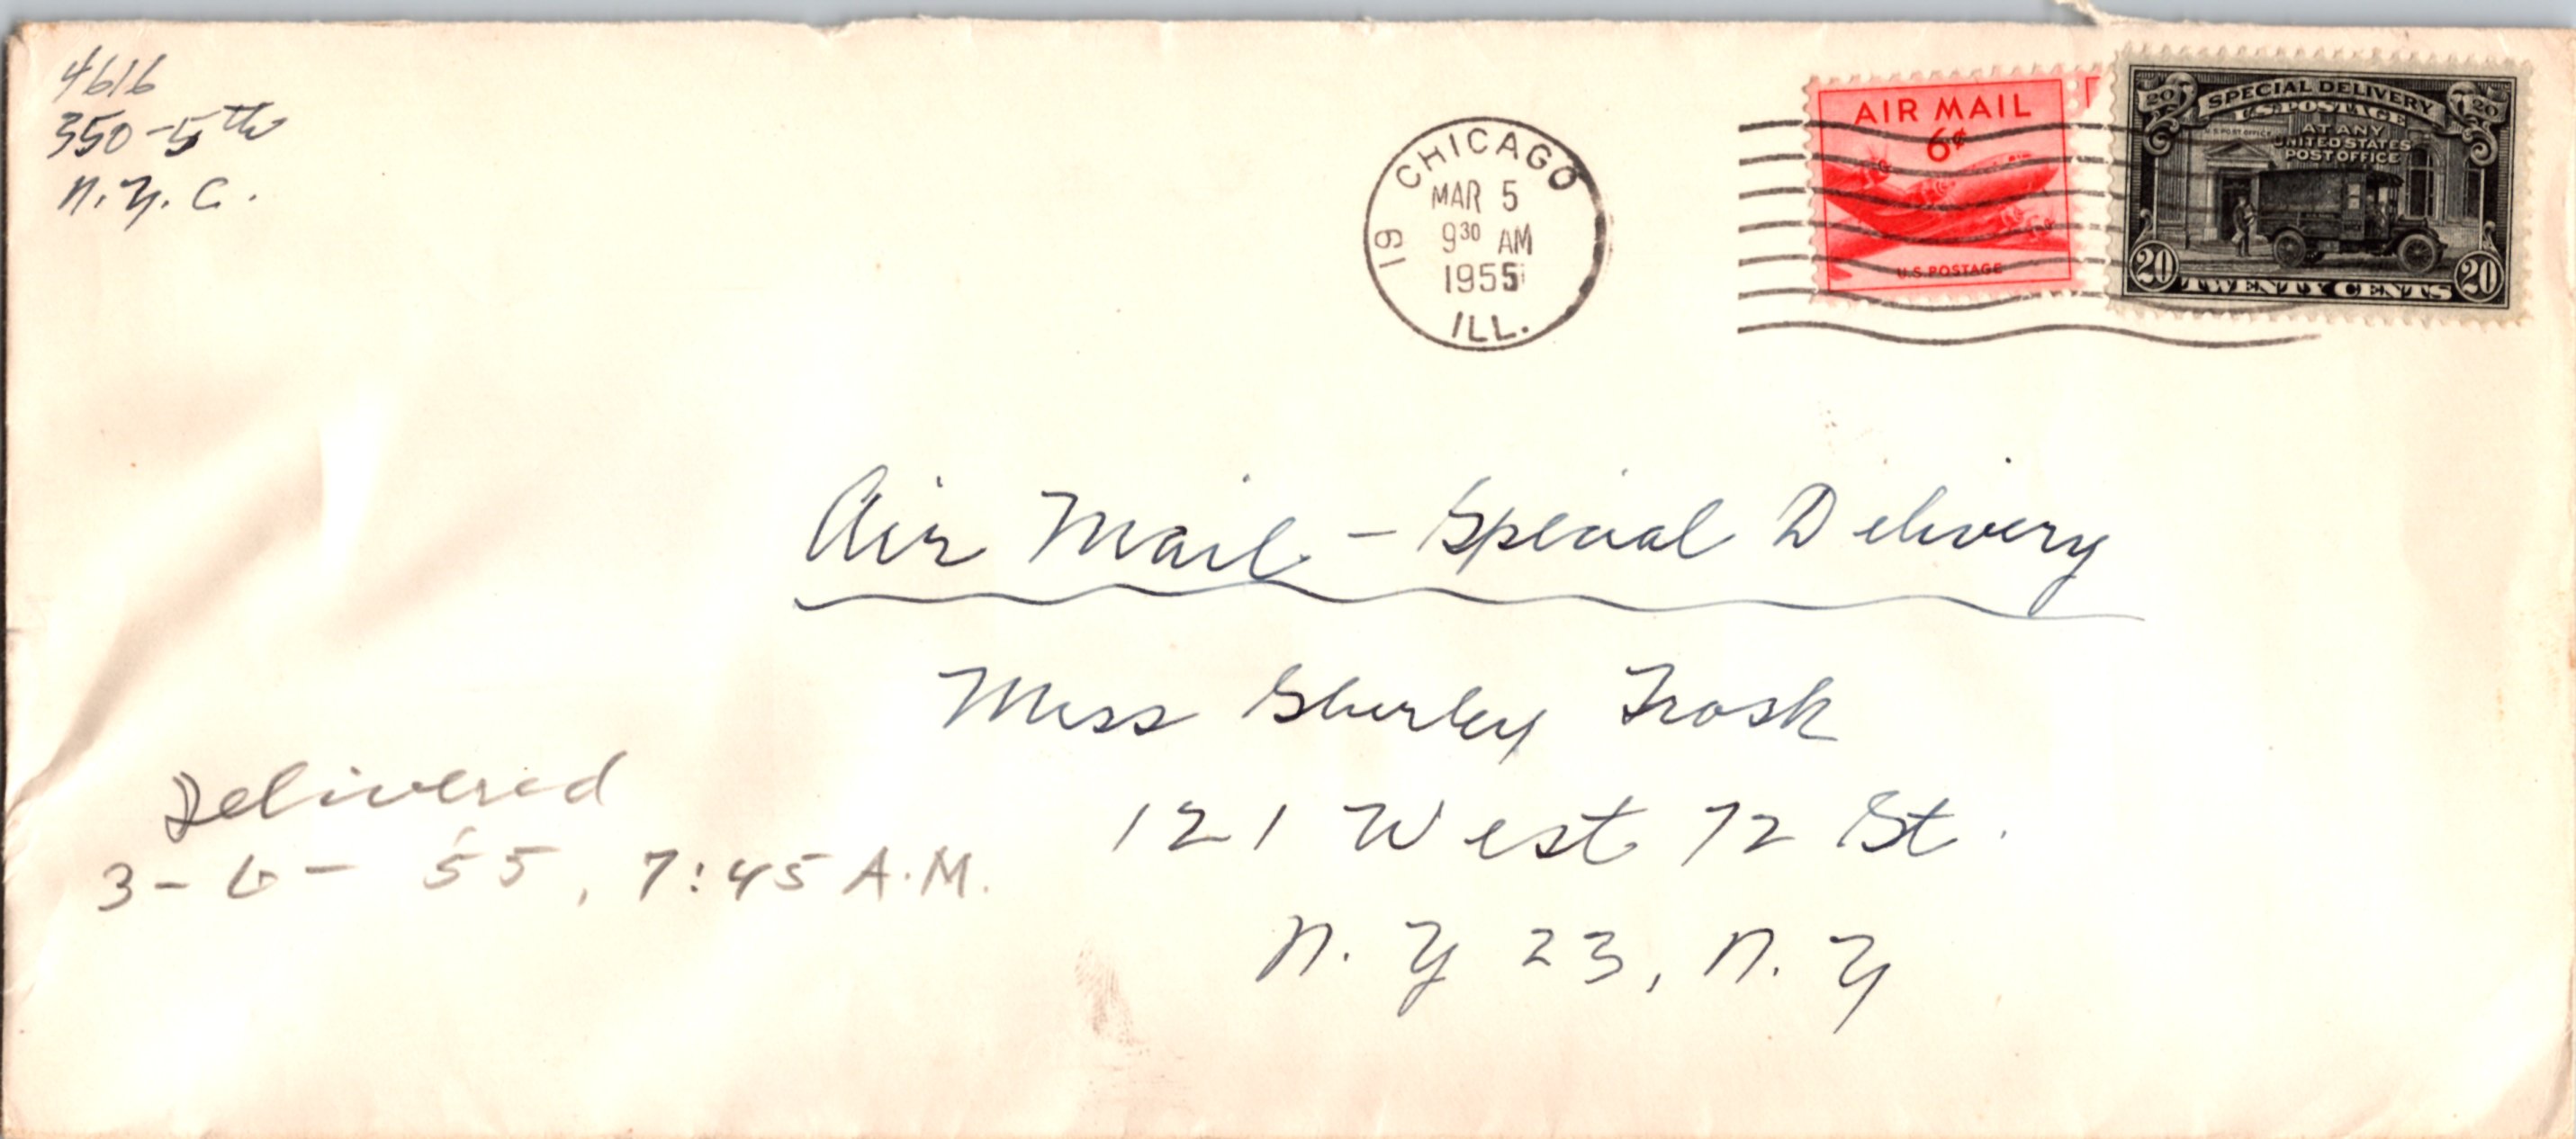 4616
350-5th
N.Y.C.
CHICAGO
19
MAR 5
9 30 AM
1955
ILL.
AIR MAIL
6¢
U.S. POSTAGE
20 20
SPECIAL DELIVERY
U.S. POSTAGE
U.S. POST OFFICE
AT ANY
UNITED STATES
POST OFFICE
20 20
TWENTY CENTS
Air Mail - Special Delivery
Miss Shirley Trosk
121 West 72 St.
N.Y 23, N.Y
Delivered
3-6-55, 7:45 A.M.